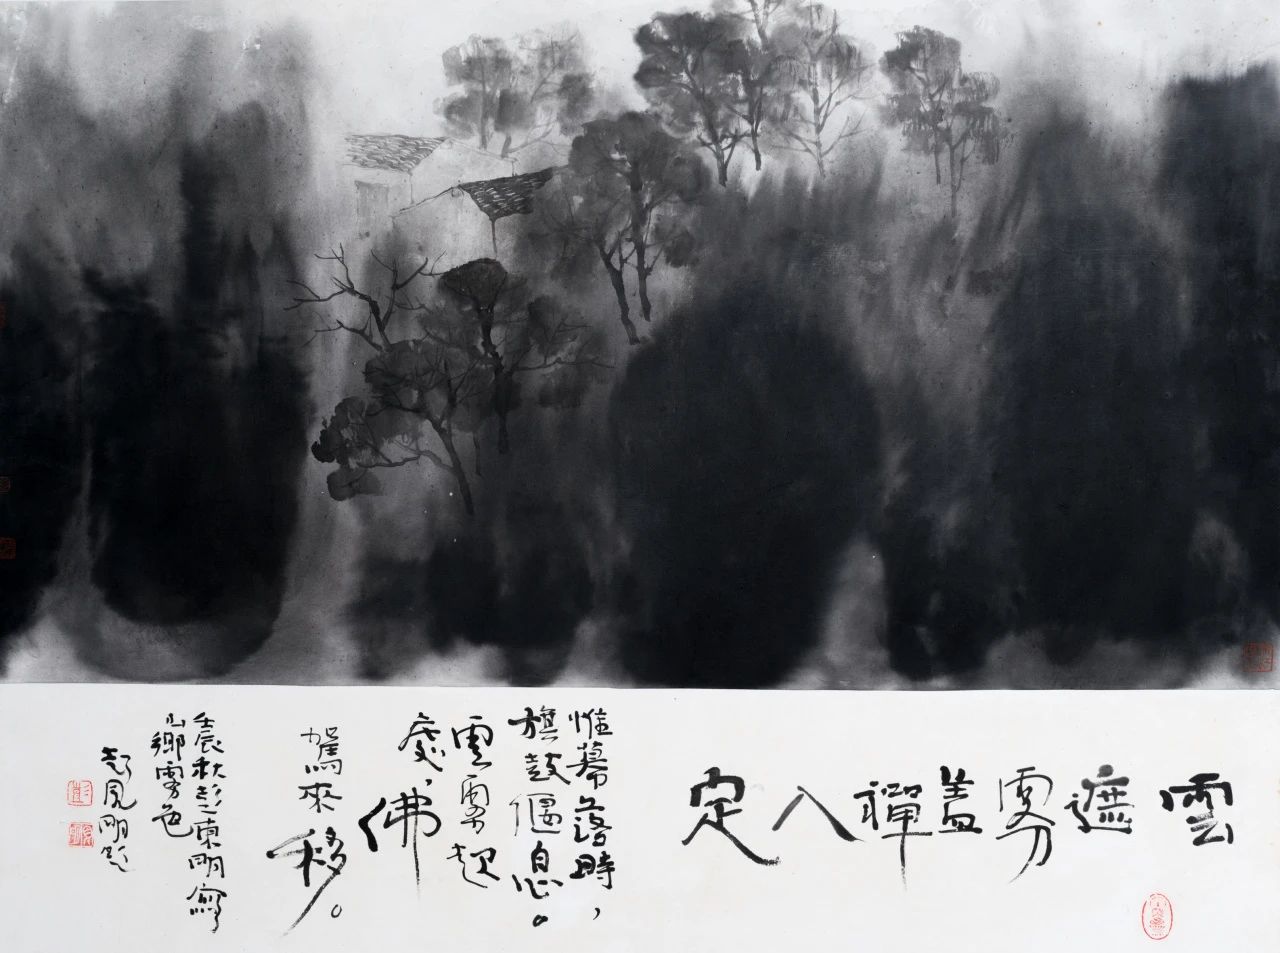 雲遮雾盖禪入定
帷幕落時，
旗鼓偃息。
雲雾起
處，佛
駕來移。
壬辰秋彭東明寫
山鄉雾色
彭見明题